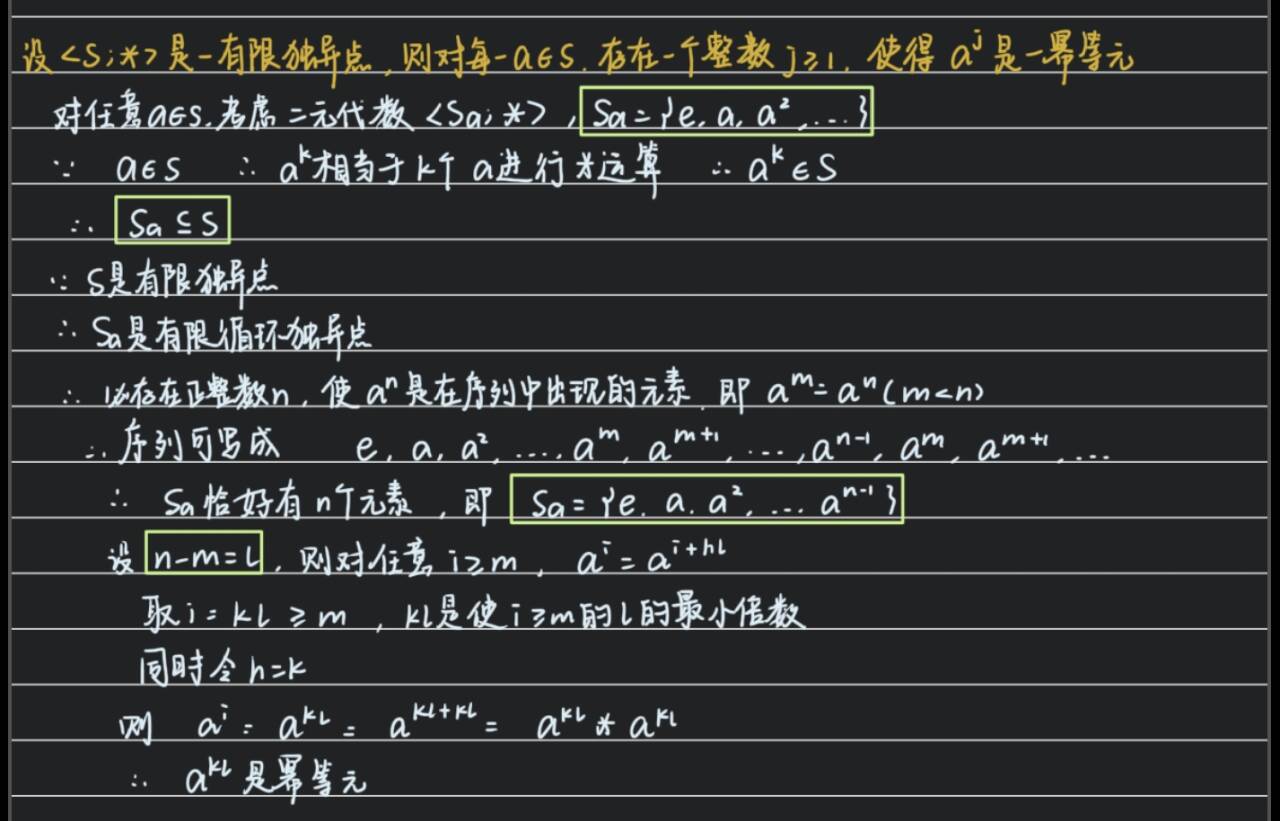 设<S;*>是一有限独异点,则对每一a∈S.存在一个整数j≥1,使得a^j是一幂等元
对任意a∈S.考虑二元代数<Sa;*>,Sa={e,a,a²,...}
∵ a∈S ∴ a^k相当于k个a进行*运算 ∴ a^k∈S
∴ Sa⊆S
∵ S是有限独异点
∴ Sa是有限循环独异点
∴ 必存在正整数n,使a^n是在序列中出现的元素.即a^m=a^n(m<n)
∴ 序列可写成 e,a,a²,...,a^m,a^{m+1},...,a^{n-1},a^m,a^{m+1},...
∴ Sa恰好有n个元素,即 Sa={e.a.a²,...a^{n-1}}
设n-m=L,则对任意i≥m,a^i=a^{i+hL}
取i=kL≥m,kL是使i≥m的L的最小倍数
同时令h=k
则 a^i=a^{kL}=a^{kL+kL}=a^{kL}*a^{kL}
∴ a^{kL}是幂等元